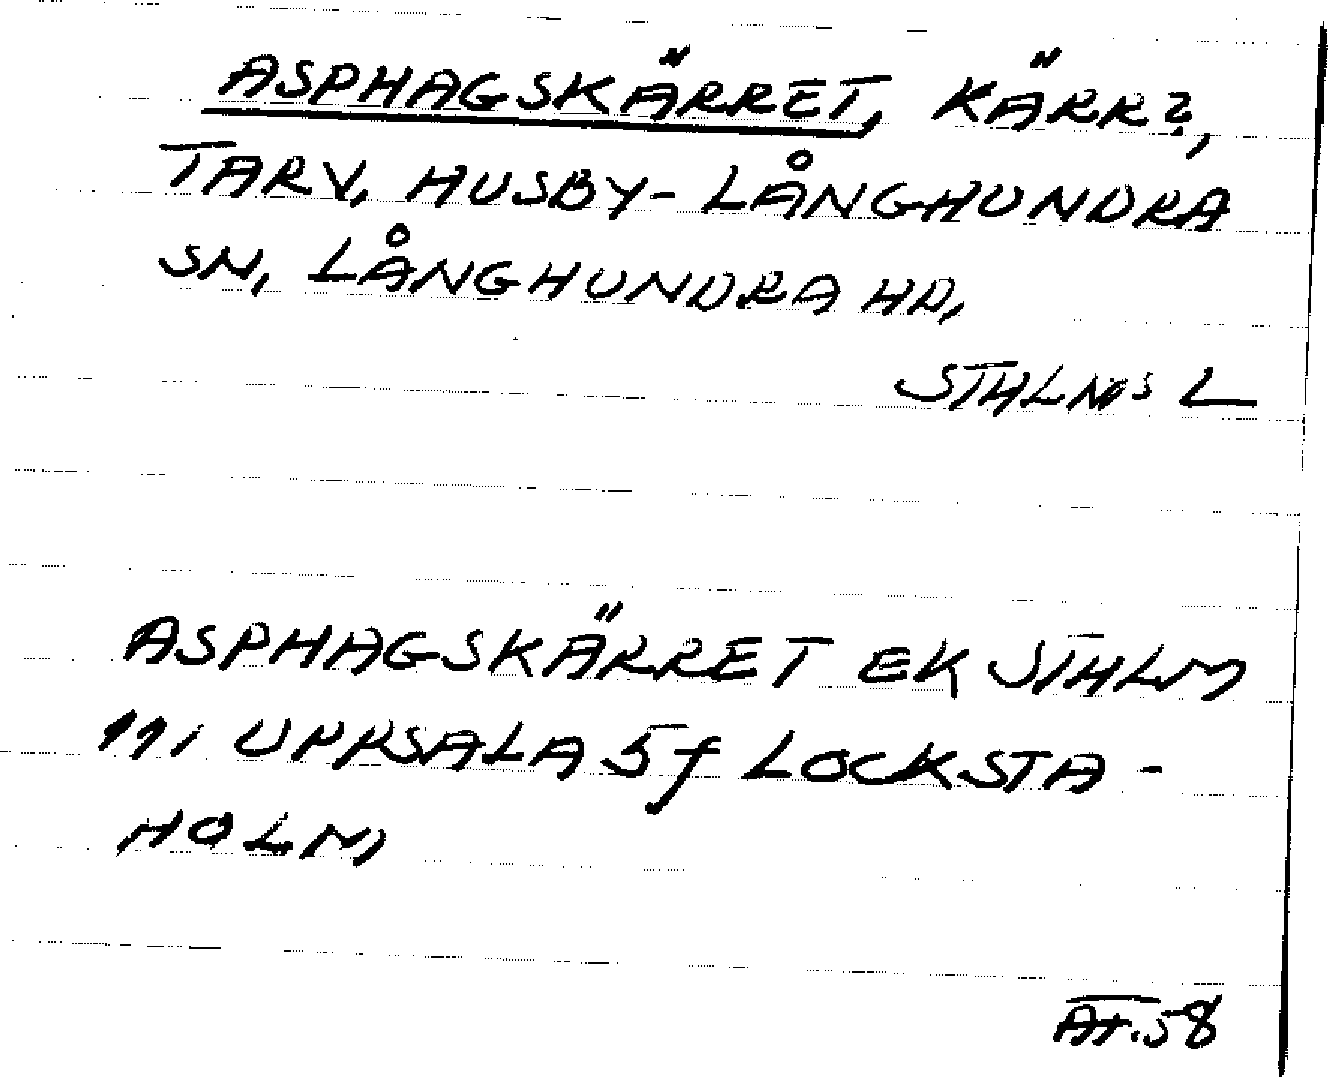 ASPHAGSKÄRRET, KÄRR?,
TARV, HUSBY-LÅNGHUNDRA
SN, LÅNGHUNDRA HD,
STHLMS L
ASPHAGSKÄRRET EK STHLM
111 UPPSALA 5f LOCKSTA-
HOLM